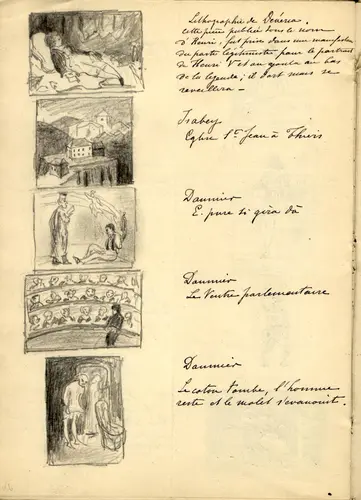 Lithographie de Devéria,
cette pièce publiée sous le nom
d'Henri, fut prise dans une
du parti légitimiste pour le portrait
de Henri V et on ajouta au bas
de la légende; il dort mais se
reveillera –
Isabey
Eglise St Jean à Thiers
Daumier
E pure si gira
Daumier
Le Ventre parlementaire
Daumier
Le coton tombe, l'homme
reste et le molet s'evanouit.